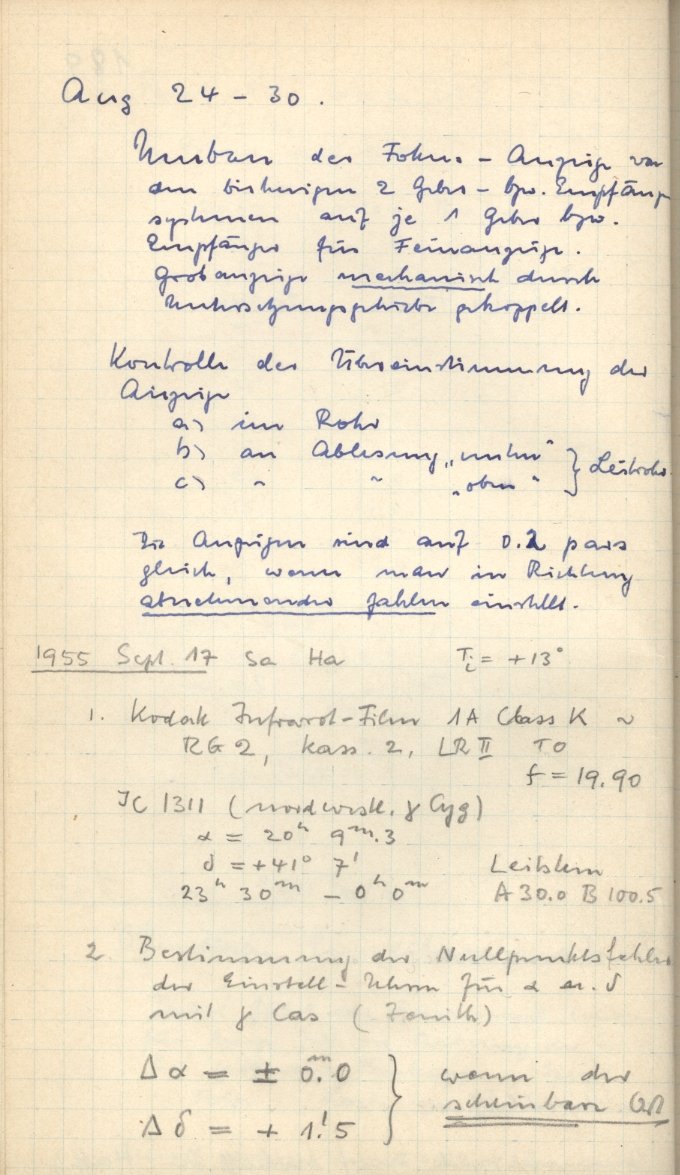 Aug 24 - 30.
Umbau der Fokus - Anzeige von
den bisherigen 2 Geber - bzw. Empfänger
systemen auf je 1 Geber bzw.
Empfänger für Feinanzeige.
Grobanzeige mechanisch durch
Untersetzungsgetriebe gekoppelt.
Kontrolle der Übereinstimmung der
Anzeige
a) im Rohr
b) an Ablesung „unten“ } Leitrohr
c) " " „oben“
Die Anzeigen sind auf 0.2 pars
gleich, wenn man in Richtung
abnehmender Zahlen einstellt.
1955 Sept. 17 Sa Ha Ti = +13°
1. Kodak Infrarot-Film 1A Class K ~
RG 2, Kass. 2, LR II TO
f = 19.90
IC 1311 (nordwestl. γ Cyg)
α = 20h 9m.3
δ = +41° 7' Leitstern
23h 30m - 0h 0m A 30.0 B 100.5
2. Bestimmung der Nullpunktsfehler
der Einstell-Uhren für α u. δ
mit γ Cas (Zenith)
Δα = ± 0m.0 } wenn der
scheinbare Ort
Δδ = + 1'.5